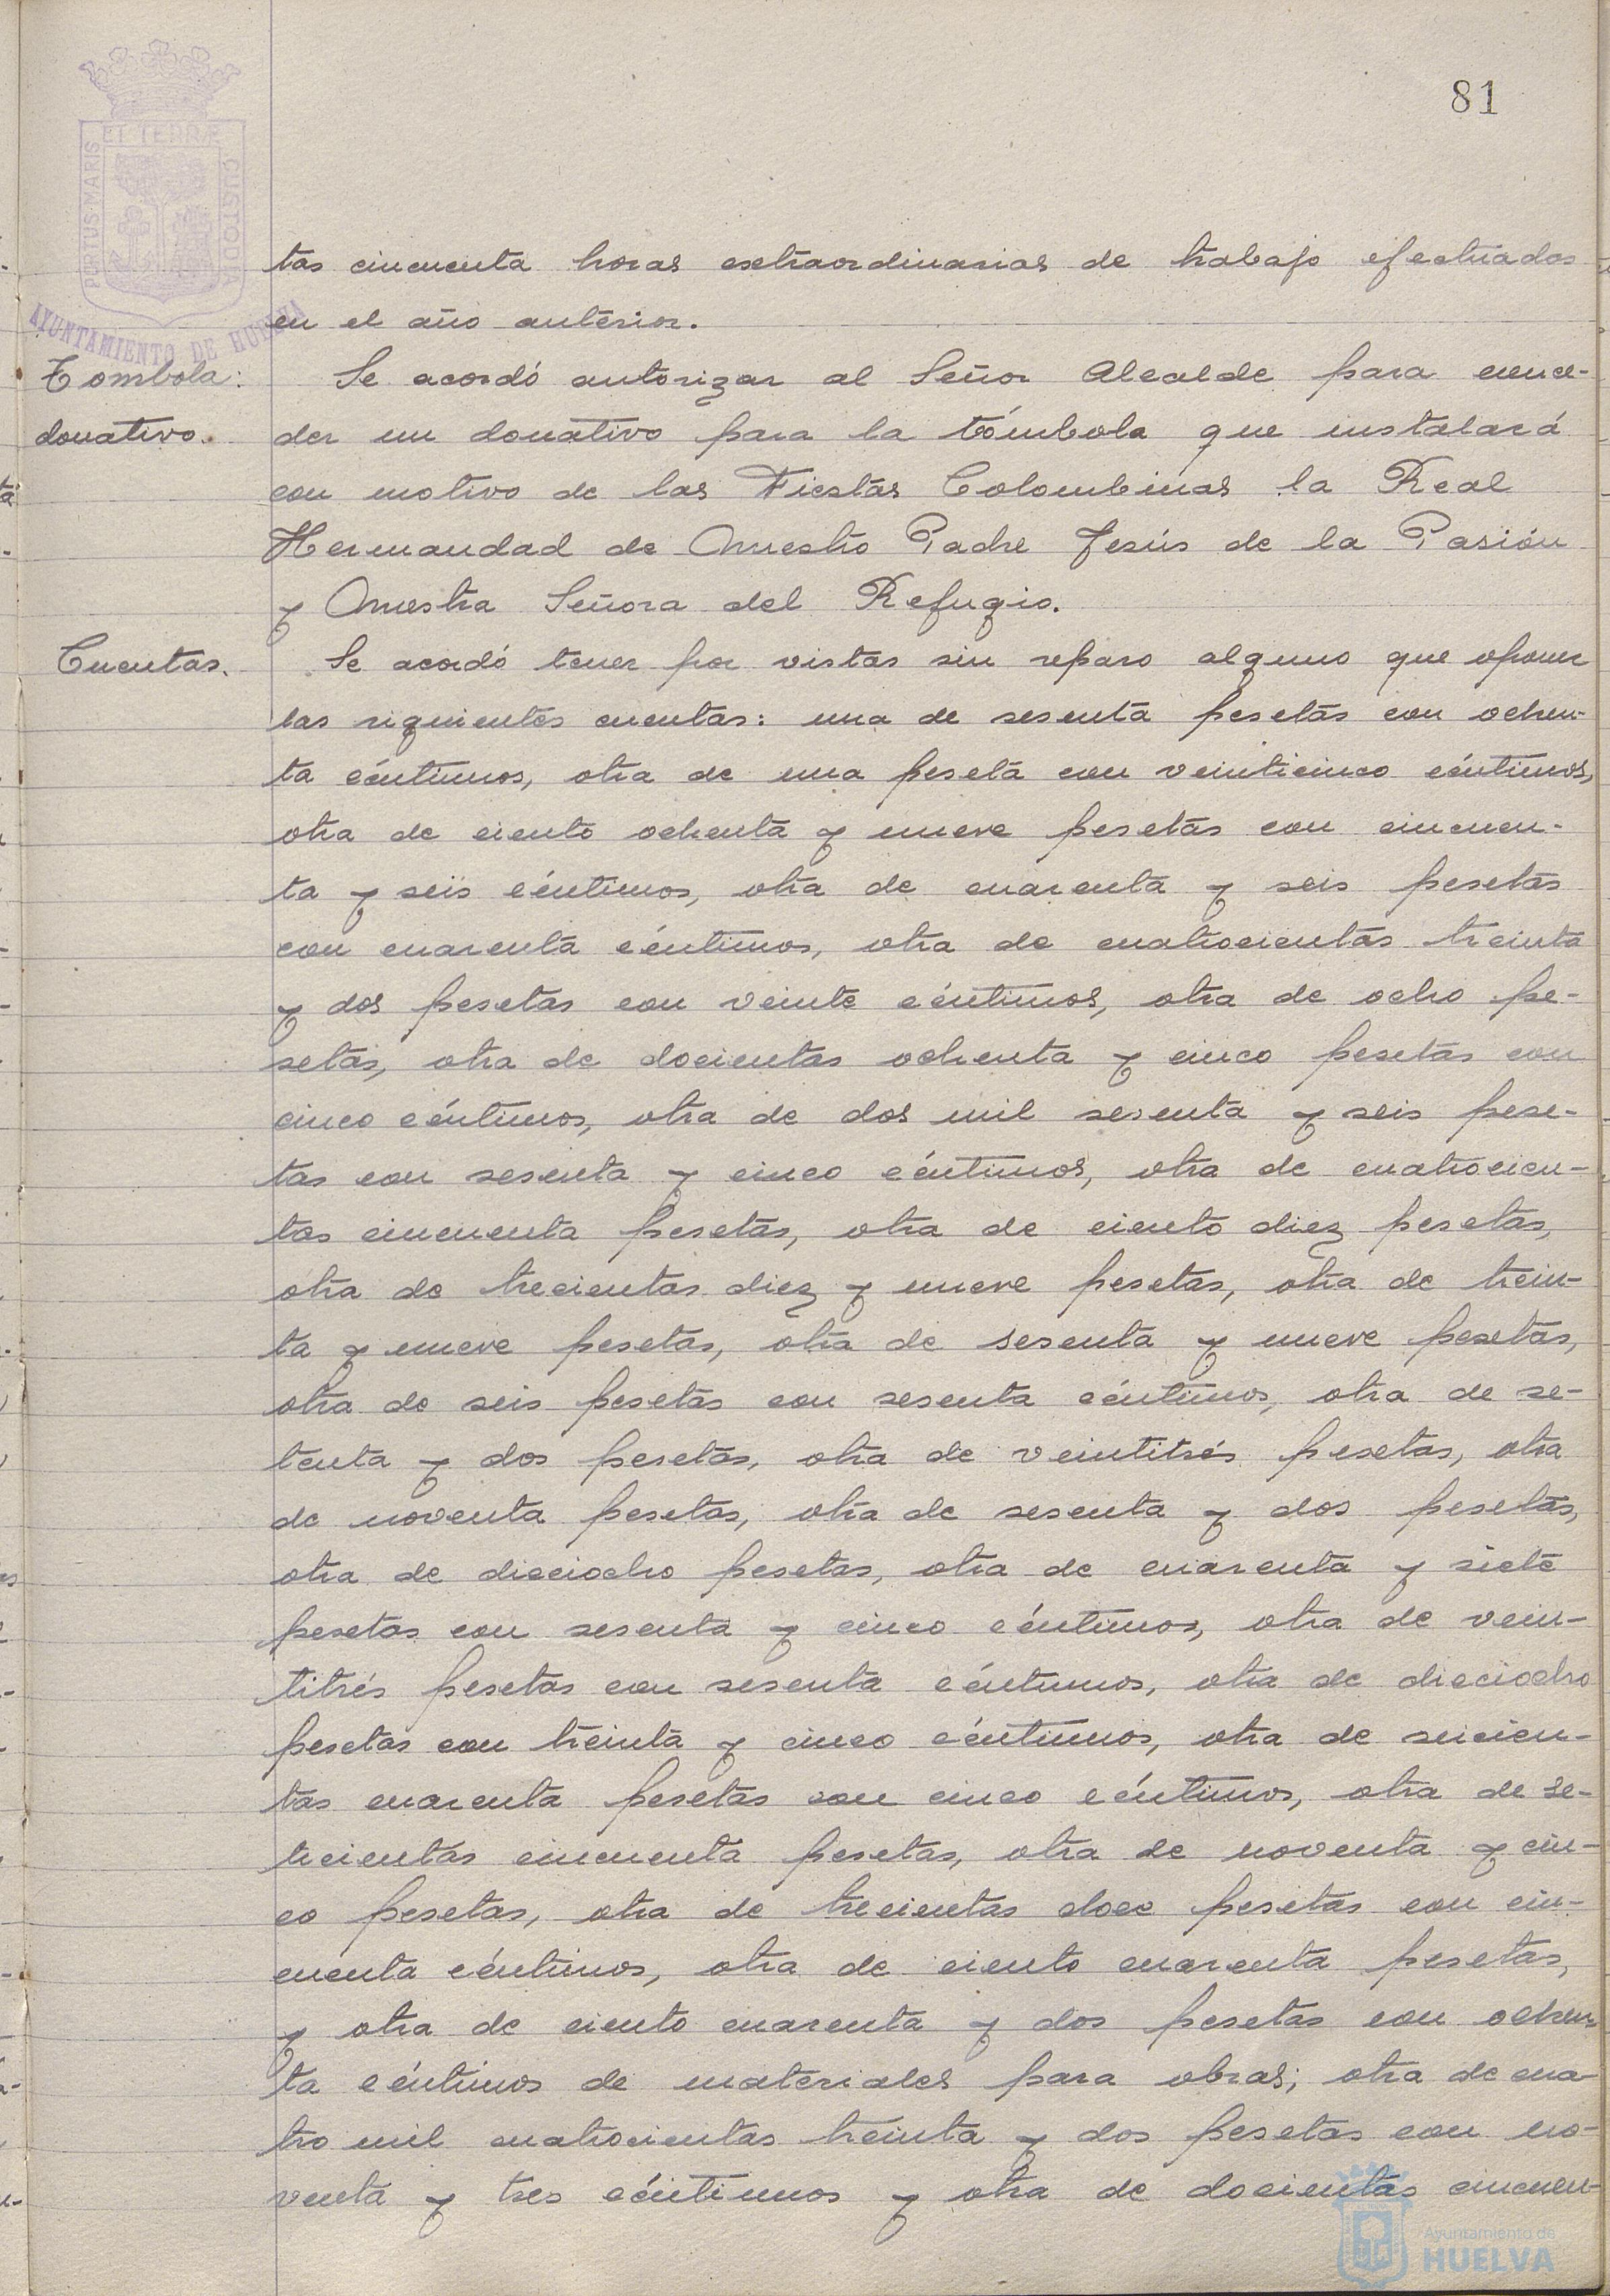 81
PORTUS MARIS ET TERRÆ CUSTODIA
AYUNTAMIENTO DE HUELVA
tas cincuenta horas extraordinarias de trabajo efectuados
en el año anterior.
Tombola:
donativo.
Se acordó autorizar al Señor Alcalde para conce-
der un donativo para la tómbola que instalará
con motivo de las Fiestas Colombinas la Real
Hermandad de Nuestro Padre Jesús de la Pasión
y Nuestra Señora del Refugio.
Cuentas.
Se acordó tener por vistas sin reparo alguno que oponer
las siguientes cuentas: una de sesenta pesetas con ochen-
ta céntimos, otra de una peseta con veinticinco céntimos,
otra de ciento ochenta y nueve pesetas con cincuen-
ta y seis céntimos, otra de cuarenta y seis pesetas
con cuarenta céntimos, otra de cuatrocientas treinta
y dos pesetas con veinte céntimos, otra de ocho pe-
setas, otra de docientas ochenta y cinco pesetas con
cinco céntimos, otra de dos mil sesenta y seis pese-
tas con sesenta y cinco céntimos, otra de cuatrocien-
tas cincuenta pesetas, otra de ciento diez pesetas,
otra de trecientas diez y nueve pesetas, otra de trein-
ta y nueve pesetas, otra de sesenta y nueve pesetas,
otra de seis pesetas con sesenta céntimos, otra de se-
tenta y dos pesetas, otra de veintitrés pesetas, otra
de noventa pesetas, otra de sesenta y dos pesetas,
otra de dieciocho pesetas, otra de cuarenta y siete
pesetas con sesenta y cinco céntimos, otra de vein-
titrés pesetas con sesenta céntimos, otra de dieciocho
pesetas con treinta y cinco céntimos, otra de seicien-
tas cuarenta pesetas con cinco céntimos, otra de se-
tecientas cincuenta pesetas, otra de noventa y cin-
co pesetas, otra de trecientas doce pesetas con cin-
cuenta céntimos, otra de ciento cuarenta pesetas,
y otra de ciento cuarenta y dos pesetas con ochen-
ta céntimos de materiales para obras; otra de cua-
tro mil cuatrocientas treinta y dos pesetas con no-
venta y tres céntimos y otra de docientas cincuen-
Ayuntamiento de
HUELVA